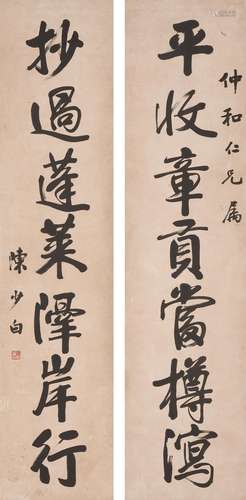 仲和仁兄属
平收章貢當樽瀉
抄過蓬萊𨼆岸行
陳少白